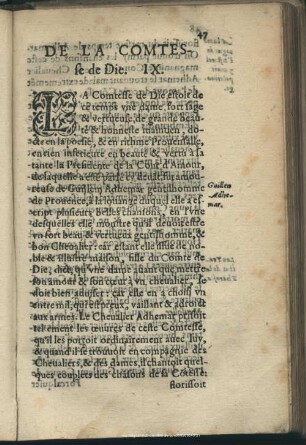 47
DE LA COMTES-
se de Die. IX.
LA Comtesse de Die estoit de
ce temps vne dame fort sage
& vertueuse, de grande beau-
té & honneste maintien, do-
cte en la poësie, & en rithme Prouensalle,
en rien inferieure en beauté & vertu à sa
tante la Presidente de la Court d'Amour,
de laquelle a esté parlé cy deuãt: fut amou-
reuse de Guillem Adhemar gentilhomme
de Prouence, à la loüange duquel elle a es-
cript plusieurs belles chansons, en l'vne
desquelles elle monstre qu'il deuoit estre
vn fort beau & vertueux gentilhomme, &
bon Cheualier: car estant elle issue de no-
ble & illustre maison, fille du Comte de
Die, dict, qu'vne dame auant que mettre
son amour & son cœur à vn cheualier, se
doit bien aduiser: car elle en a choisi vn
entre mil, qui est preux, vaillant & adroict
aux armes. Le Cheualier Adhemar prisoit
tellement les œuures de ceste Comtesse,
qu'il les portoit ordinairement auec luy,
& quand il se trouuoit en compagnie des
Cheualiers, & des dames, il chantoit quel-
ques couplets des chãsons de la Cõtesse.
florissoit
Guillem
Adhe-
mar.